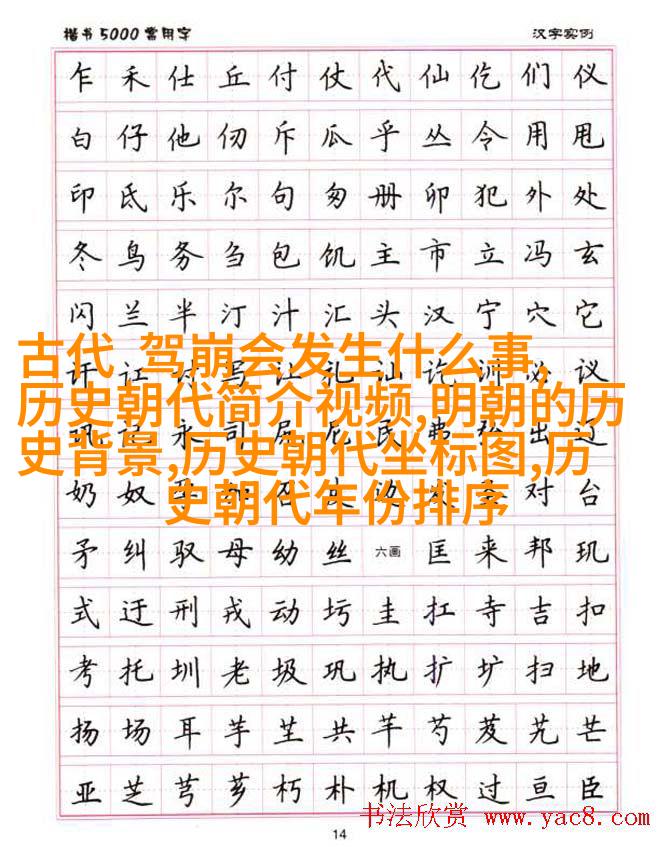 楷书5000常用字 汉字实例
乍禾仕丘付仗代仙仡们仪
白仔他仞斥瓜乎丛令用甩
印氐乐尔句匆册卯犯外处
冬鸟务刍包饥主市立冯玄
闪兰半汀汁汇头汉宁穴它
古代 驾崩会发生什么事,
议
历史朝代简介视频,明朝的历
永司民弗出辽
史背景,历史朝代坐标图,历
奶奴对台
史朝代年份排序
矛纠驭母幼丝六画匡来邦玑
式迂刑戎动圬圭扛寺吉扣
考托圳老圾巩执扩圹扫地
扬场耳芋芏共芊芍芨艽芒
亚芝芎芗朽朴机权过亘臣
书法欣赏 www.yac8.com
14